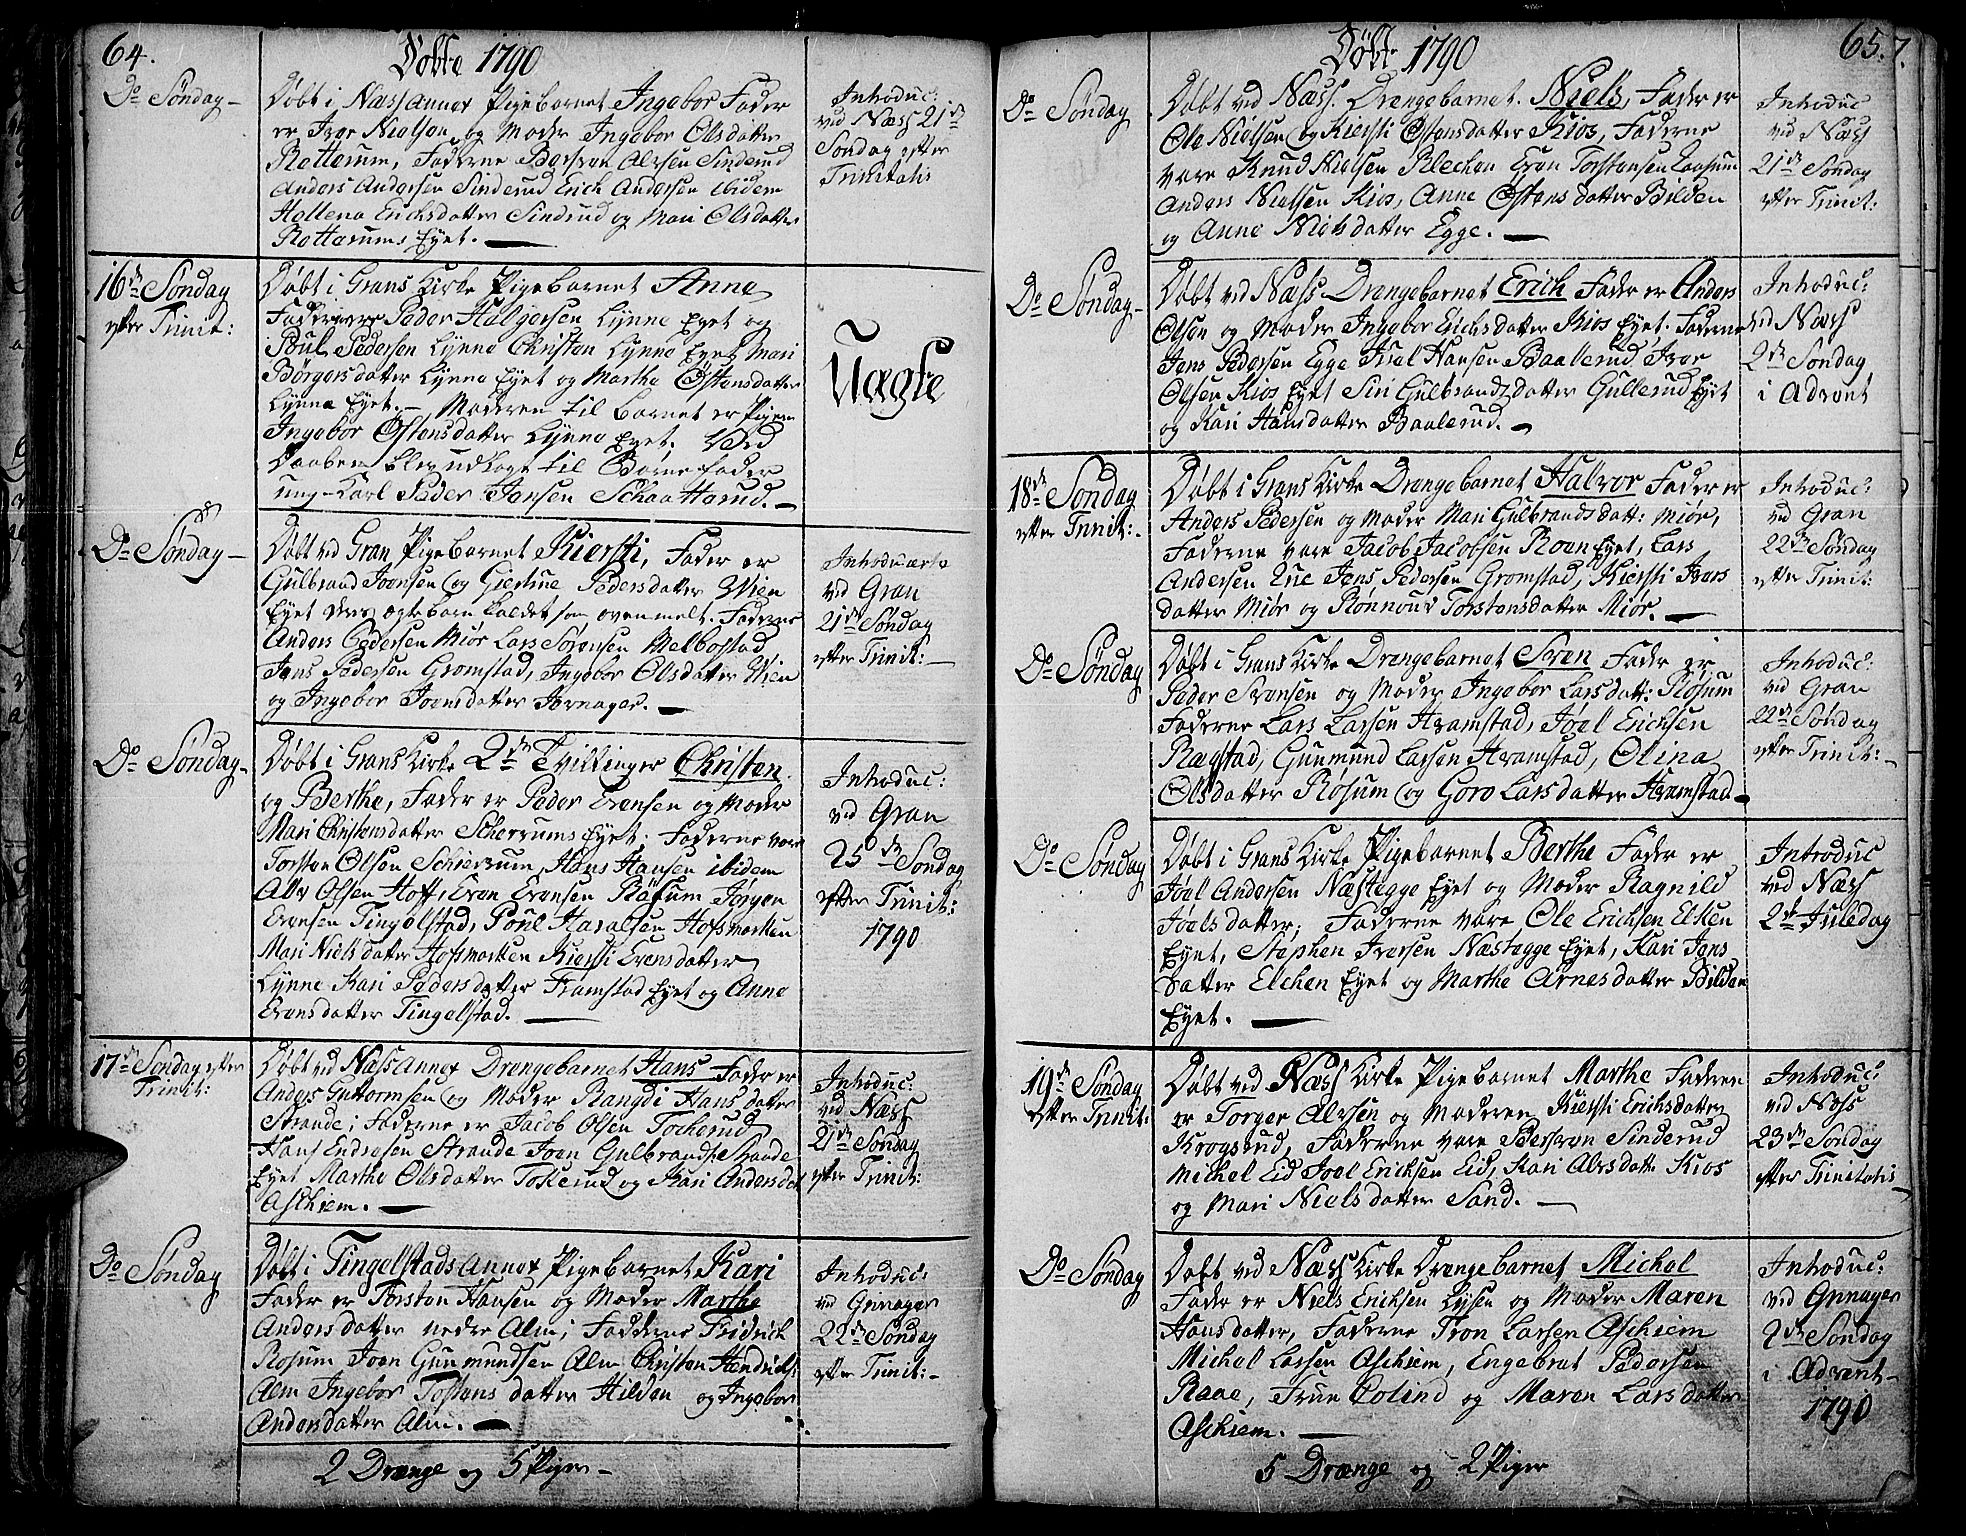 64.
Døbte 1790
Do Søndag —
Døbt i Næss Annex Pigebarnet Ingebor Fader
er Iver Nielsen og Moder Ingebor Olsdatter
Rotterum, Fadderne Bersven Alvsen Sinderud
Anders Andersen Sinderud Erich Andersen ibidem
Hellena Erichsdatter Sindrud og Mari Olsdatter
Rotterums Eyet. —
Introduc:
ved Næss 21de
Søndag efter
Trinitatis
16de Søndag
efter Trinit:
Døbt i Grans Kirke Pigebarnet Anne
Fadderne Peder Halgersen Lynne Eyet og
Poul Pedersen Lynne Christen Lynne Eyet Mari
Børgersdatter Lynne Eyet og Marthe Østensdatter
Lynne Eyet. — Moderen til Barnet er Pigen
Ingebor Østensdatter Lynne Eyet. Ved
Daaben blev udlagt til Barnefader
ung-Karl Peder Jensen Schaatterud. —
Uægte
Do Søndag —
Døbt ved Gran Pigebarnet Kiersti, Fader er
Gulbrand Joensen og Giertrue Pedersdatter Wien
Eyet deres ægtebarn kaldet som ovenmelt. Fadderne
Anders Pedersen Miør Lars Sørensen Melbostad
Jens Pedersen Gromstad, Ingebor Olsdatter Wien
og Ingebor Joensdatter Jernager. —
Introducerte
ved Gran
21de Søndag
efter Trinit: —
Do Søndag —
Døbt i Grans Kirke 2de Tvillinger Christen
og Berthe, Fader er Peder Evensen og Moder
Mari Christensdatter Scherrums Eyet; Fadderne vare
Torsten Olsen Schierrum, Hans Hansen ibidem
Alv Olsen Hoff, Even Evensen Råssum Jørgen
Evensen Tingelstad, Poul Haralsen Hofsmarken
Mari Nielsdatter Hofsmarken Kiersti Evensdatter
Lynne Kari Pedersdatter Framstad Eyet og Anne
Evensdatter Tingelstad. —
Introduc:
ved Gran
25de Søndag
efter Trinit:
1790
17de Søndag efter
Trinit:
Døbt ved Næss Annex Drengebarnet Hans Fader er
Anders Guttormsen og Moder Rangdi Hansdatter
Strande; Fadderne er Jacob Olsen Tockerud
Hans Endresen Strande Joen Gulbrandsen
Eyet Marthe Olsdatter Tokerud og Kari Andersdat
Aschiem. —
Introduc:
ved Næss
21de Søndag
efter Trinit:
Do Søndag
Døbt i Tingelstads Annex Pigebarnet Kari
Fader er Torsten Hansen og Moder Marthe
Andersdatter nedre Alm; Fadderne Fridrick
Rosum Joen Gunmundsen Alm Christen Hendrichs:
Alm Ingebor Tostensdatter Hilden og Ingebor
Andersdatter Alm. —
Introduc:
ved Grinager
22de Søndag
efter Trinit: —
2 Drænge og 5 Piger —
65.
7.
Døbte 1790
Do Søndag
Døbt ved Næss. Drengebarnet. Niels, Fader er
Ole Nielsen og Kiersti Østensdatter Kios, Fadderne
vare Knud Nielsen Blechen Even Torstensen Laasum
Anders Nielsen Kios, Anne Østensdatter Bilden
og Anne Nielsdatter Egge. —
Introduc
ved Næss
21de Søndag
efter Trinit:
Do Søndag —
Døbt ved Næss Drengebarnet Erich Fader er Anders
Olsen og Moder Ingebor Erichsdatter Kios Eyet. Fadderne
Jens Pedersen Egge Troel Hansen Baalerud Iver
Olsen Kios Eyet Siri Gulbrandsdatter Gullerud Eyet
og Kari Hansdatter Baalerud. —
Introduc:
ved Næss
2de Søndag
i Advent
18de Søndag
efter Trinit:
Døbt i Grans Kirke Drengebarnet Halvor Fader er
Anders Pedersen og Moder Mari Gulbrandsdatt: Miør,
Fadderne vare Jacob Jacobsen Roen Eyet, Lars
Andersen Lue Jens Pedersen Gromstad, Kiersti Ivers
datter Miør og Rønnoug Torstensdatter Miør. —
Introduc:
ved Gran
22de Søndag
efter Trinit:
Do Søndag
Døbt i Grans Kirke Drengebarnet Sven Fader er
Peder Svensen og Moder Ingebor Larsdatt: Røsum
Fadderne Lars Larsen Hvamstad, Joel Erichsen
Ragstad, Gunmund Larsen Hvamstad, Olina
Olsdatter Røsum og Goro Larsdatter Hvamstad —
Introduc:
ved Gran
22de Søndag
efter Trinit: —
Do Søndag
Døbt i Grans Kirke Pigebarnet Berthe Fader er
Joel Andersen Næstegge Eyet og Moder Ragnild
Joelsdatter; Fadderne vare Ole Erichsen Elken
Eyet, Stephen Iversen Næstegge Eyet, Kari Jens
datter Elchen Eyet og Marthe Arnesdatter Bilden
Eyet. —
Introduc
ved Næss
2de Juledag
19de Søndag
efter Trinit:
Døbt ved Næss Kirke Pigebarnet Marthe Faderen
er Torger Alvsen og Moderen Kiersti Erichsdatter
Krogsrud, Fadderne vare Bersvon Sinderud
Michel Eid Joel Erichsen Eid, Kari Alvsdatt: Kios
og Mari Nielsdatter Sand. —
Introduc:
ved Næss
23de Søndag
efter Trinitatis
Do Søndag
Døbt ved Næss Kirke Drengebarnet Michel
Fader er Niels Erichsen Lysen og Moder Maren
Hansdatter, Fadderne Tron Larsen Aschiem
Michel Larsen Aschiem, Engebret Pedersen
Raae, Frue Colind og Maren Larsdatter
Aschiem. —
Introduc:
ved Grinager
2de Søndag
i Advent —
1790
5 Drænge og 2 Piger